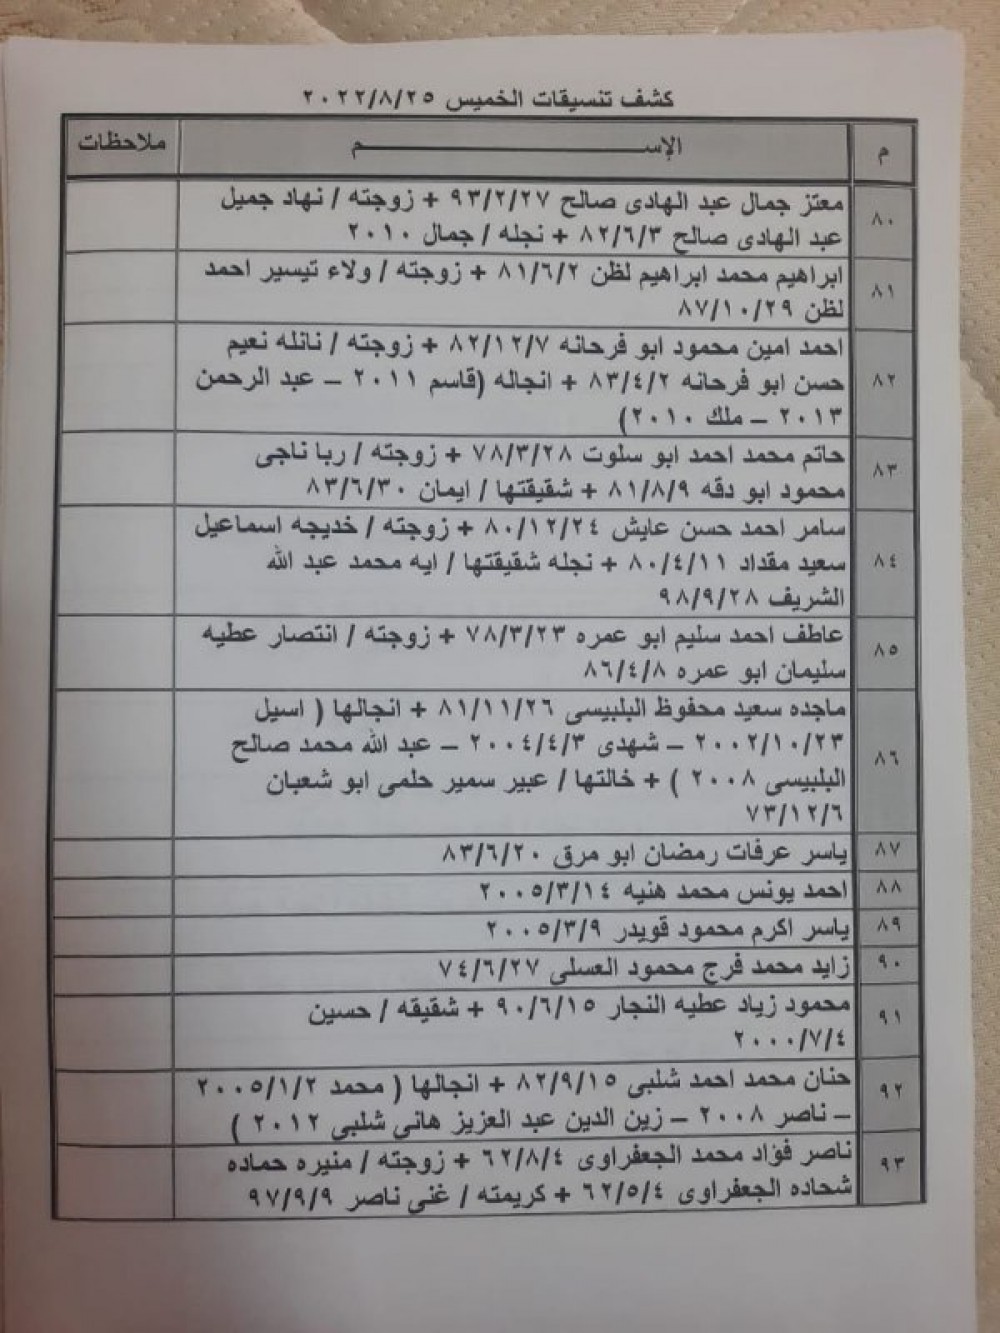 كشف تنسيقات الخميس ٢٠٢٢/٨/٢٥
م
الإســـــــــــم
ملاحظات
٨٠
معتز جمال عبد الهادى صالح ٩٣/٢/٢٧ + زوجته / نهاد جميل
عبد الهادى صالح ٨٢/٦/٣ + نجله / جمال ٢٠١٠
٨١
ابراهيم محمد ابراهيم لظن ٨١/٦/٢ + زوجته / ولاء تيسير احمد
لظن ٨٧/١٠/٢٩
٨٢
احمد امين محمود ابو فرحانه ٨٢/١٢/٧ + زوجته / نائله نعيم
حسن ابو فرحانه ٨٣/٤/٢ + انجاله (قاسم ٢٠١١ – عبد الرحمن
٢٠١٣ – ملك ٢٠١٠)
٨٣
حاتم محمد احمد ابو سلوت ٧٨/٣/٢٨ + زوجته / ربا ناجى
محمود ابو دقه ٨١/٨/٩ + شقيقتها / ايمان ٨٣/٦/٣٠
٨٤
سامر احمد حسن عايش ٨٠/١٢/٢٤ + زوجته / خديجه اسماعيل
سعيد مقداد ٨٠/٤/١١ + نجله شقيقتها / ايه محمد عبد الله
الشريف ٩٨/٩/٢٨
٨٥
عاطف احمد سليم ابو عمره ٧٨/٣/٢٣ + زوجته / انتصار عطيه
سليمان ابو عمره ٨٦/٤/٨
٨٦
ماجده سعيد محفوظ البلبيسى ٨١/١١/٢٦ + انجالها ( اسيل
٢٠٠٢/١٠/٢٣ – شهدى ٢٠٠٤/٤/٣ – عبد الله محمد صالح
البلبيسى ٢٠٠٨ ) + خالتها / عبير سمير حلمى ابو شعبان
٧٣/١٢/٦
٨٧
ياسر عرفات رمضان ابو مرق ٨٣/٦/٢٠
٨٨
احمد يونس محمد هنيه ٢٠٠٥/٣/١٤
٨٩
ياسر اكرم محمود قويدر ٢٠٠٥/٣/٩
٩٠
زايد محمد فرج محمود العسلى ٧٤/٦/٢٧
٩١
محمود زياد عطيه النجار ٩٠/٦/١٥ + شقيقه / حسين
٢٠٠٠/٧/٤
٩٢
حنان محمد احمد شلبى ٨٢/٩/١٥ + انجالها ( محمد ٢٠٠٥/١/٢
– ناصر ٢٠٠٨ – زين الدين عبد العزيز هانى شلبى ٢٠١٢ )
٩٣
ناصر فؤاد محمد الجعفراوى ٦٢/٨/٤ + زوجته / منيره حماده
شحاده الجعفراوى ٦٢/٥/٤ + كريمته / غنى ناصر ٩٧/٩/٩